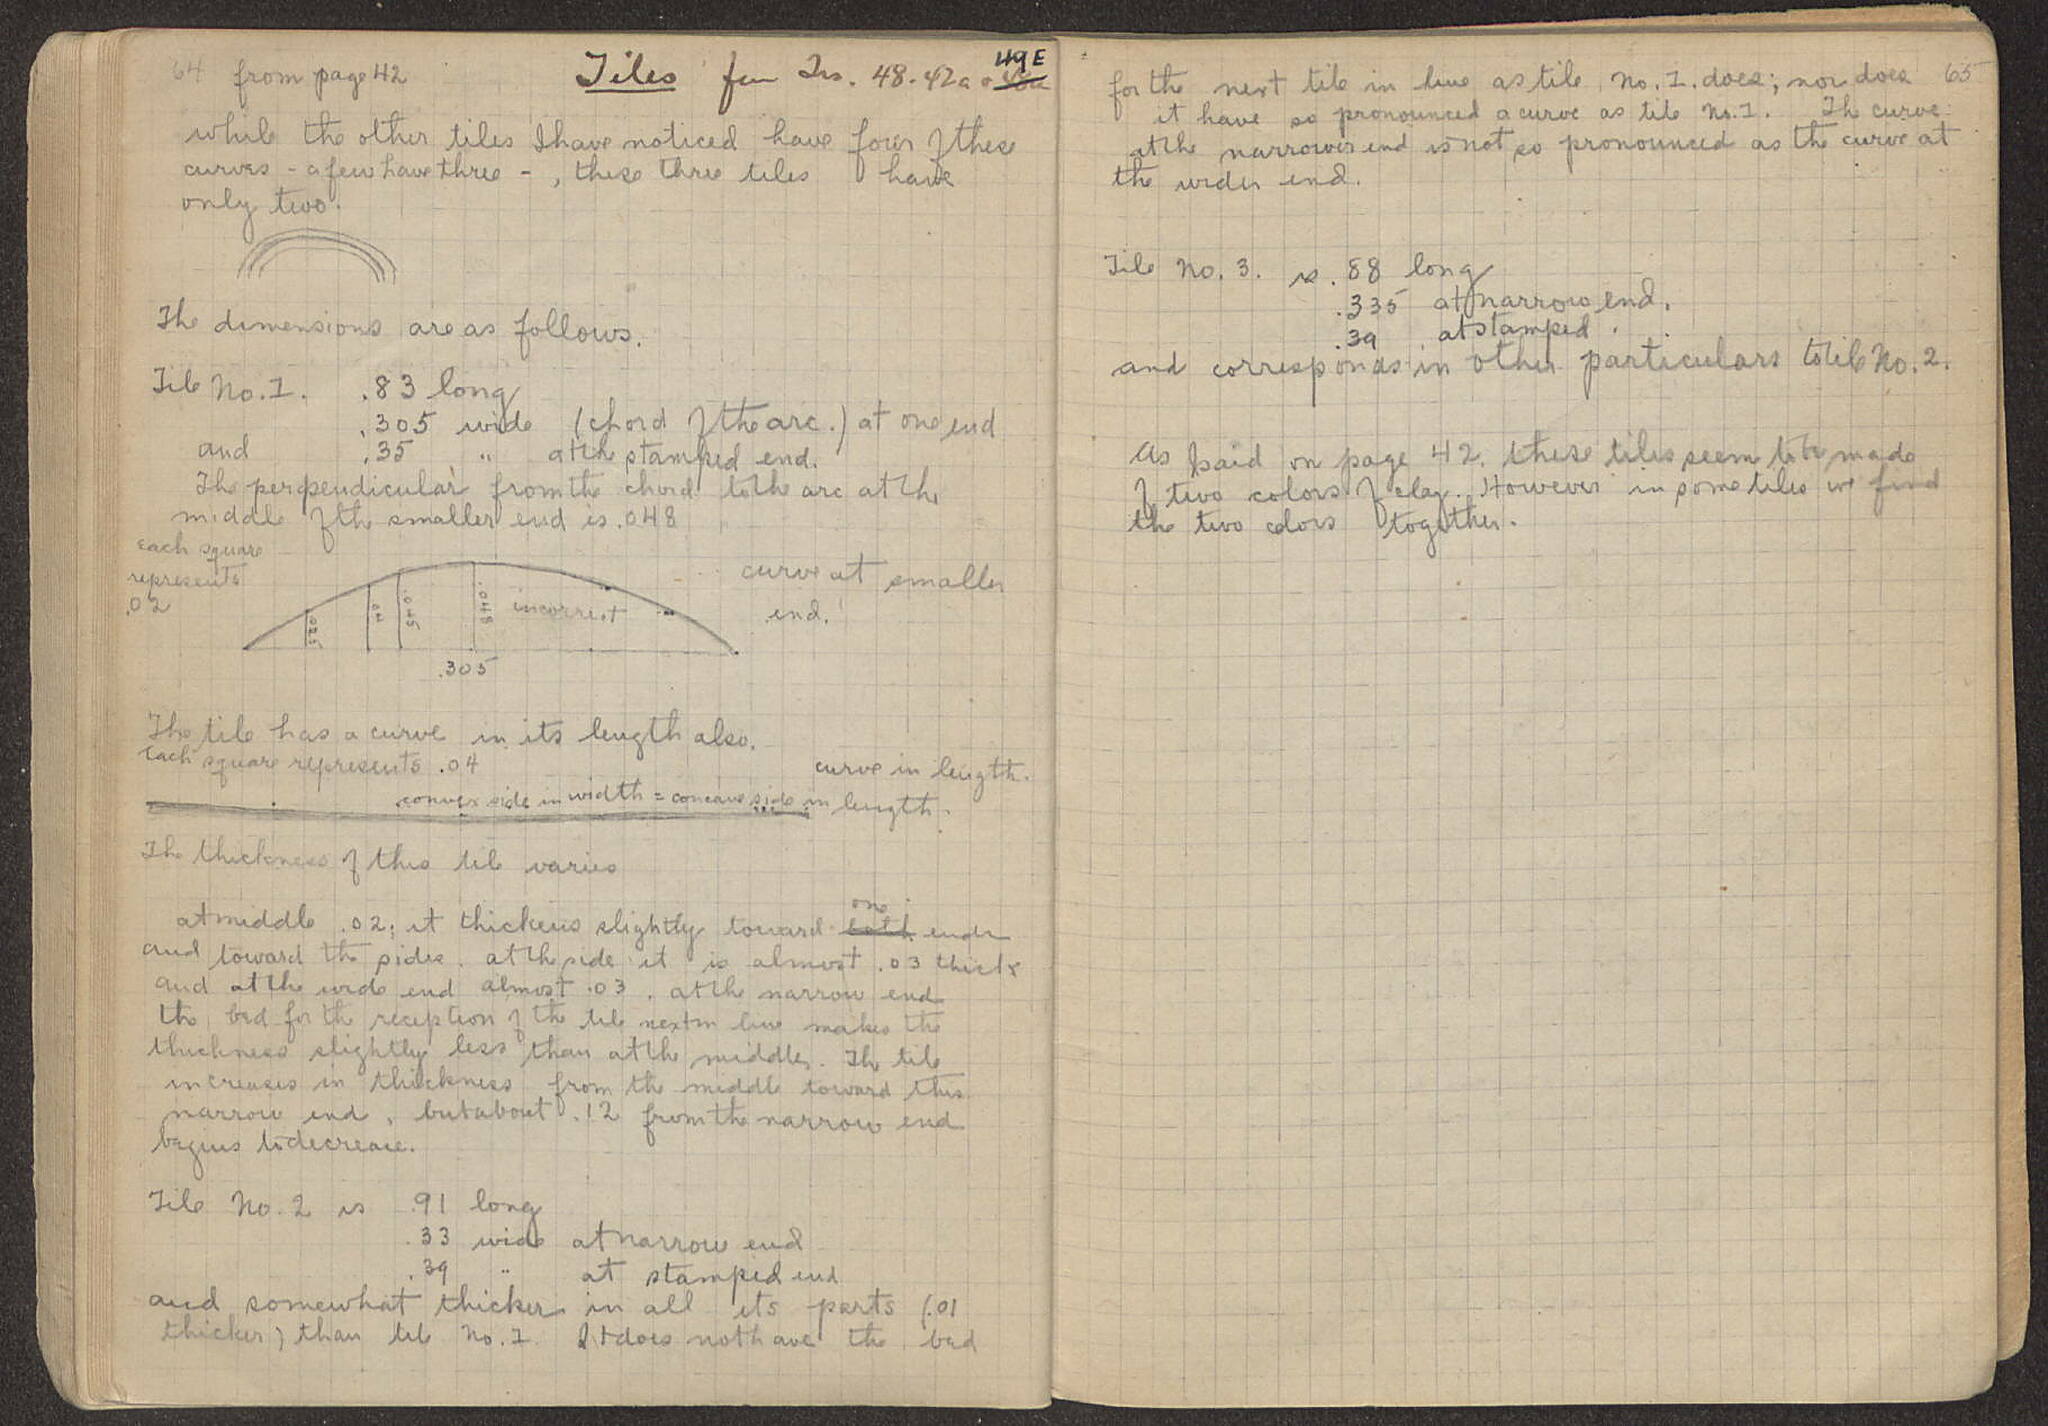 64 from page 42
Tiles from Trs. 48-42a & 48a 49E
while the other tiles I have noticed have four of these
curves - a few have three - , these three tiles have
only two.
The dimensions are as follows.
Tile No. 1. .83 long
.305 wide (chord of the arc.) at one end
and .35 " at the stamped end.
The perpendicular from the chord to the arc at the
middle of the smaller end is .048
each square
represents
.02
.025
.04
.045
.048
incorrect
curve at smaller
end.
.305
The tile has a curve in its length also.
Each square represents .04
curve in length.
convex side in width = concave side in length.
The thickness of this tile varies
at middle .02; it thickens slightly toward both one ends
and toward the sides. at the side it is almost .03 thick
and at the wide end almost .03. at the narrow end
the bed for the reception of the tile next in line makes the
thickness slightly less than at the middle. The tile
increases in thickness from the middle toward this
narrow end, but about .12 from the narrow end
begins to decrease.
Tile No. 2 is .91 long
.33 wide at narrow end
.39 " at stamped end
and somewhat thicker in all its parts (.01
thicker) than tile No. 1. It does not have the bed
65
for the next tile in line as tile No. 1. does; nor does
it have so pronounced a curve as tile No. 1. The curve
at the narrower end is not so pronounced as the curve at
the wider end.
Tile No. 3. is .88 long
.335 at narrow end.
.39 at stamped .
and corresponds in other particulars to tile No. 2.
As said on page 42. these tiles seem to be made
of two colors of clay. However in some tiles we find
the two colors together.